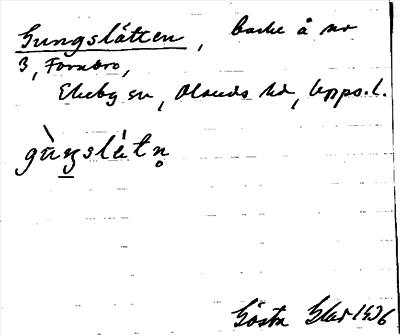 Gungslätten, backe å nr
3, Fornbro,
Ekeby sn, Olands hd, Upps. l.
gùŋslátṇ
Gösta 1936